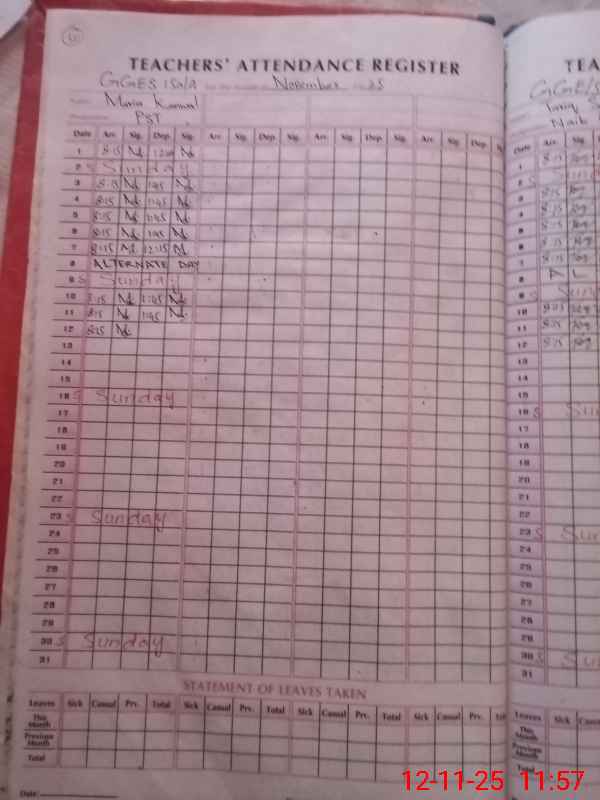 TEACHERS' ATTENDANCE REGISTER
GGES 150/A November
Name Maria Kanwal
PST
Date Arr. Sig. Dep. Sig. Arr. Sig. Dep. Sig. Arr. Sig. Dep. Sig. Arr. Sig. Dep.
1 8:15
2 S Sunday
3 8:15 1:45
4 8:15 1:45
5 8:15 1:45
6 8:15 1:45
7 8:15 12:15
8 ALTERNATE DAY
9 S Sunday
10 8:15 1:45
11 8:15 1:45
12 8:15
13
14
15
16 S Sunday
17
18
19
20
21
22
23 S Sunday
24
25
26
27
28
29
30 S Sunday
31
STATEMENT OF LEAVES TAKEN
Leaves Sick Casual Prv. Total Sick Casual Prv. Total Sick Casual Prv. Total Sick Casual Prv.
This Month
Previous Month
Total
Date:
TEA
GGE/S
Tariq S
Naib
Date Arr. Sig.
1 8:15
2 S Sun
3 8:15
4 8:15
5 8:15
6 8:15
7 8:15
8 A L
9 S Sun
10 8:15
11 8:15
12 8:15
13
14
15
16 S Su
17
18
19
20
21
22
23 S Su
24
25
26
27
28
29
30 S Su
31
Leaves Sick
This Month
Previous Month
Total
12-11-25 11:57